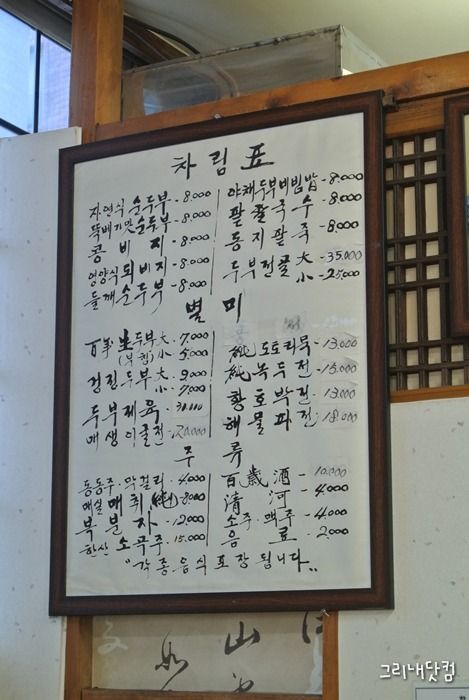 차림표
자연식 순두부 - 8.000
뚝배기맛순두부 - 8.000
콩비지 - 8.000
영양식 되비지 - 8.000
들깨순두부 - 8.000
야채두부비빔밥 - 8.000
팥칼국수 - 8.000
동지팥죽 - 8.000
두부전골 大 - 35.000
小 - 25.000
별미
生두부 大 7.000
小 5.000
두부 大 9.000
小 7.000
두부제육
매생이굴전 20.000
純도토리묵 - 13.000
純녹두전 - 15.000
황호박전 - 13.000
해물파전 18.000
주류
동동주·막걸리 - 4.000
매실매취純 - 8.000
복분자 - 12.000
한산 소곡주 - 15.000
百歲酒 - 10.000
淸河 - 4.000
소주·맥주 - 4.000
음료 - 2.000
"각종음식포장됩니다"
山
如
그리내닷컴